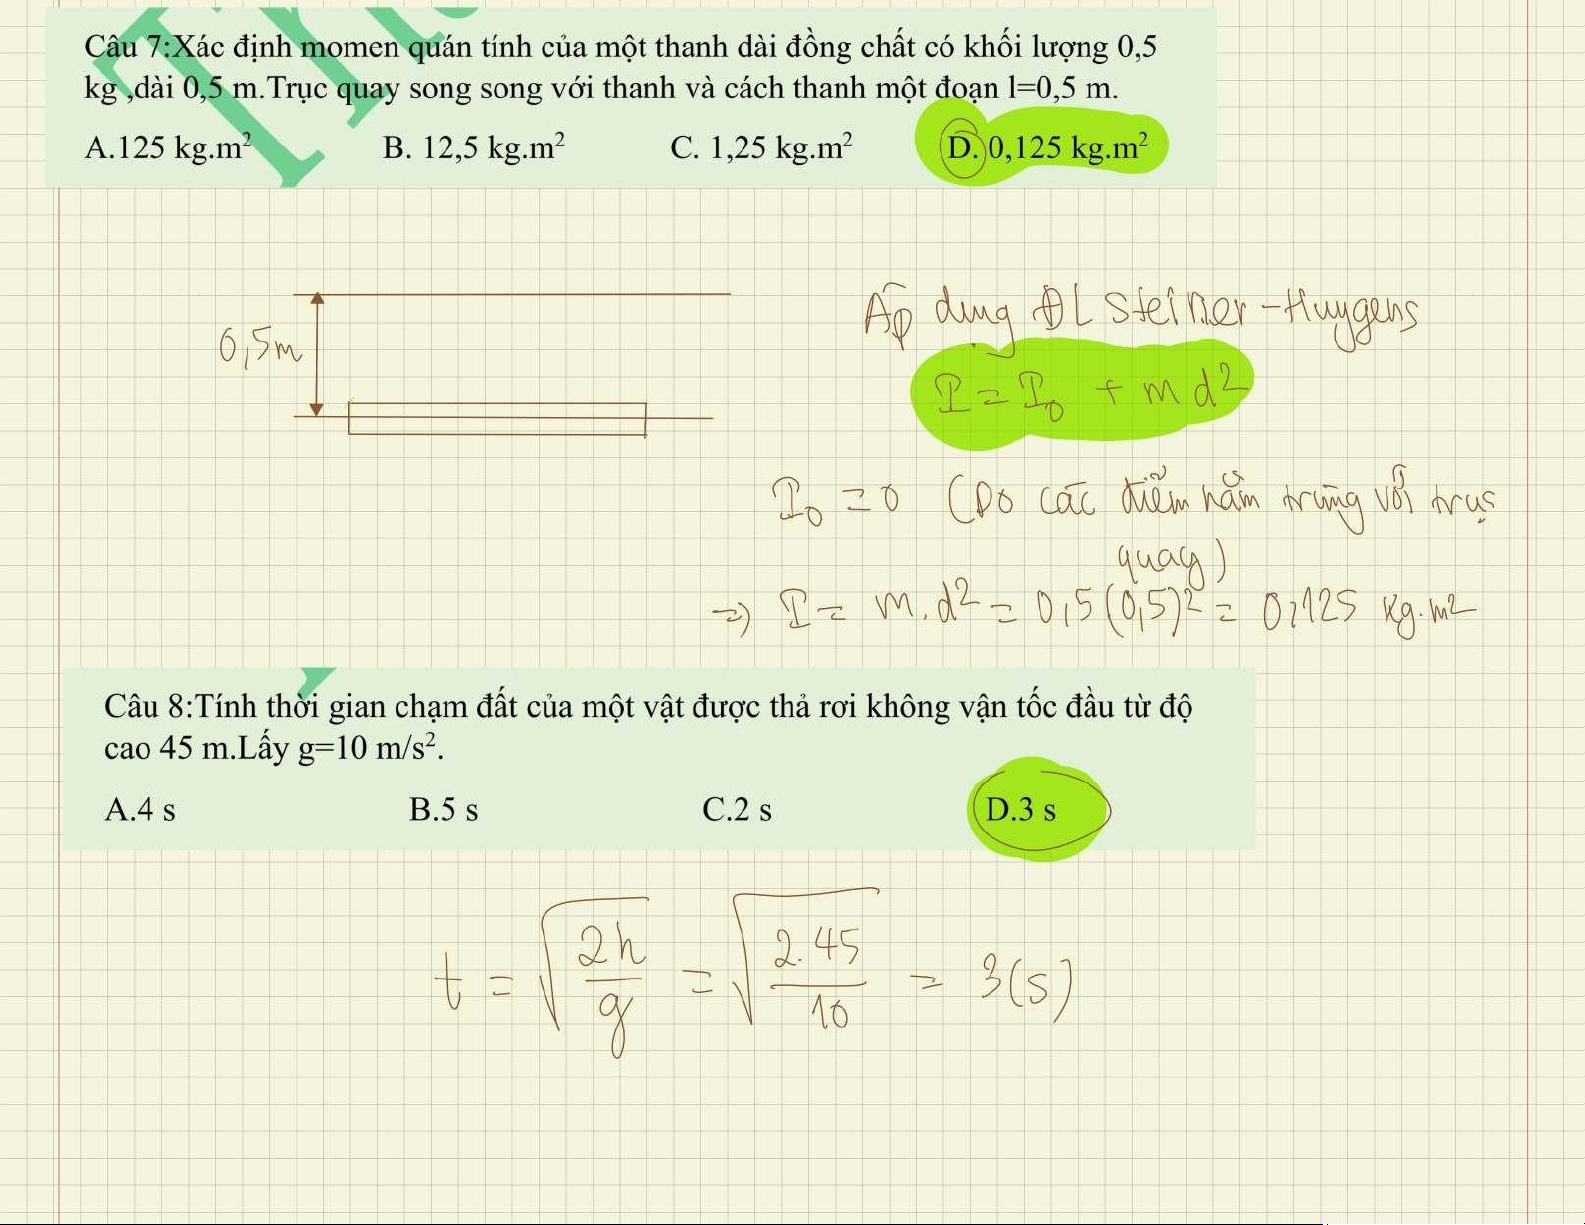 Câu 7:Xác định momen quán tính của một thanh dài đồng chất có khối lượng 0,5
kg ,dài 0,5 m.Trục quay song song với thanh và cách thanh một đoạn l=0,5 m.
A.125 kg.m² B. 12,5 kg.m² C. 1,25 kg.m² D. 0,125 kg.m²
0,5m
Áp dụng ĐL Steiner-Huygens
I = I₀ + md²
I₀ = 0 (Do các điểm nằm trùng với trục
quay)
=> I = m.d² = 0,5(0,5)² = 0,125 kg.m²
Câu 8:Tính thời gian chạm đất của một vật được thả rơi không vận tốc đầu từ độ
cao 45 m.Lấy g=10 m/s².
A.4 s B.5 s C.2 s D.3 s
t = √(2h/g) = √(2.45/10) = 3(s)